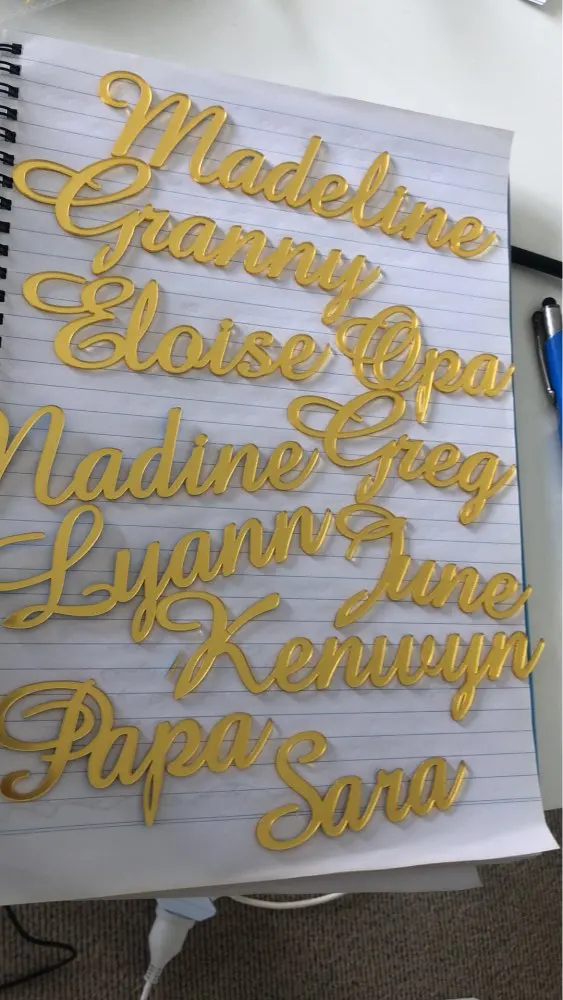 Madeline
Granny
Eloise
Opa
Nadine
Greg
Lyann
June
Kenwyn
Papa
Sara